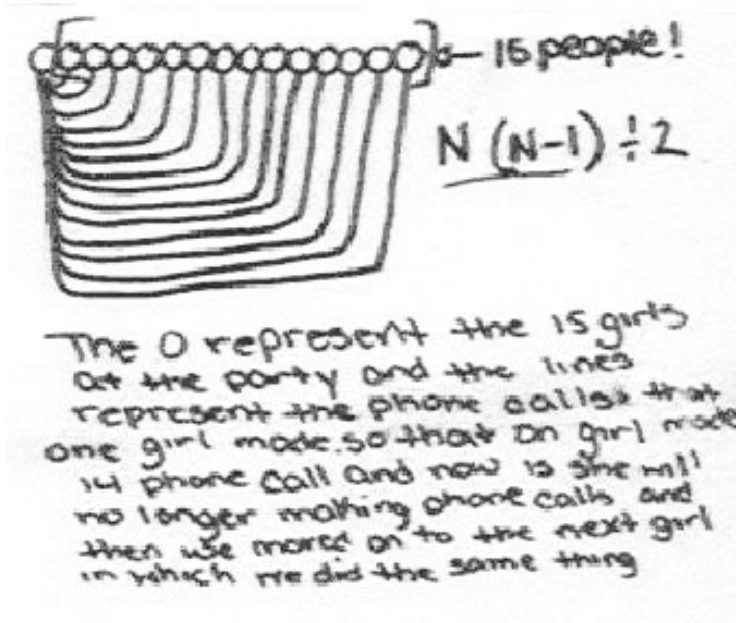 15 people!
N (N-1) ÷ 2
The O represent the 15 girls
at the party and the lines
represent the phone calls that
one girl made. so that on girl made
14 phone call and now is she will
no longer making phone calls and
then we moved on to the next girl
in which we did the same thing